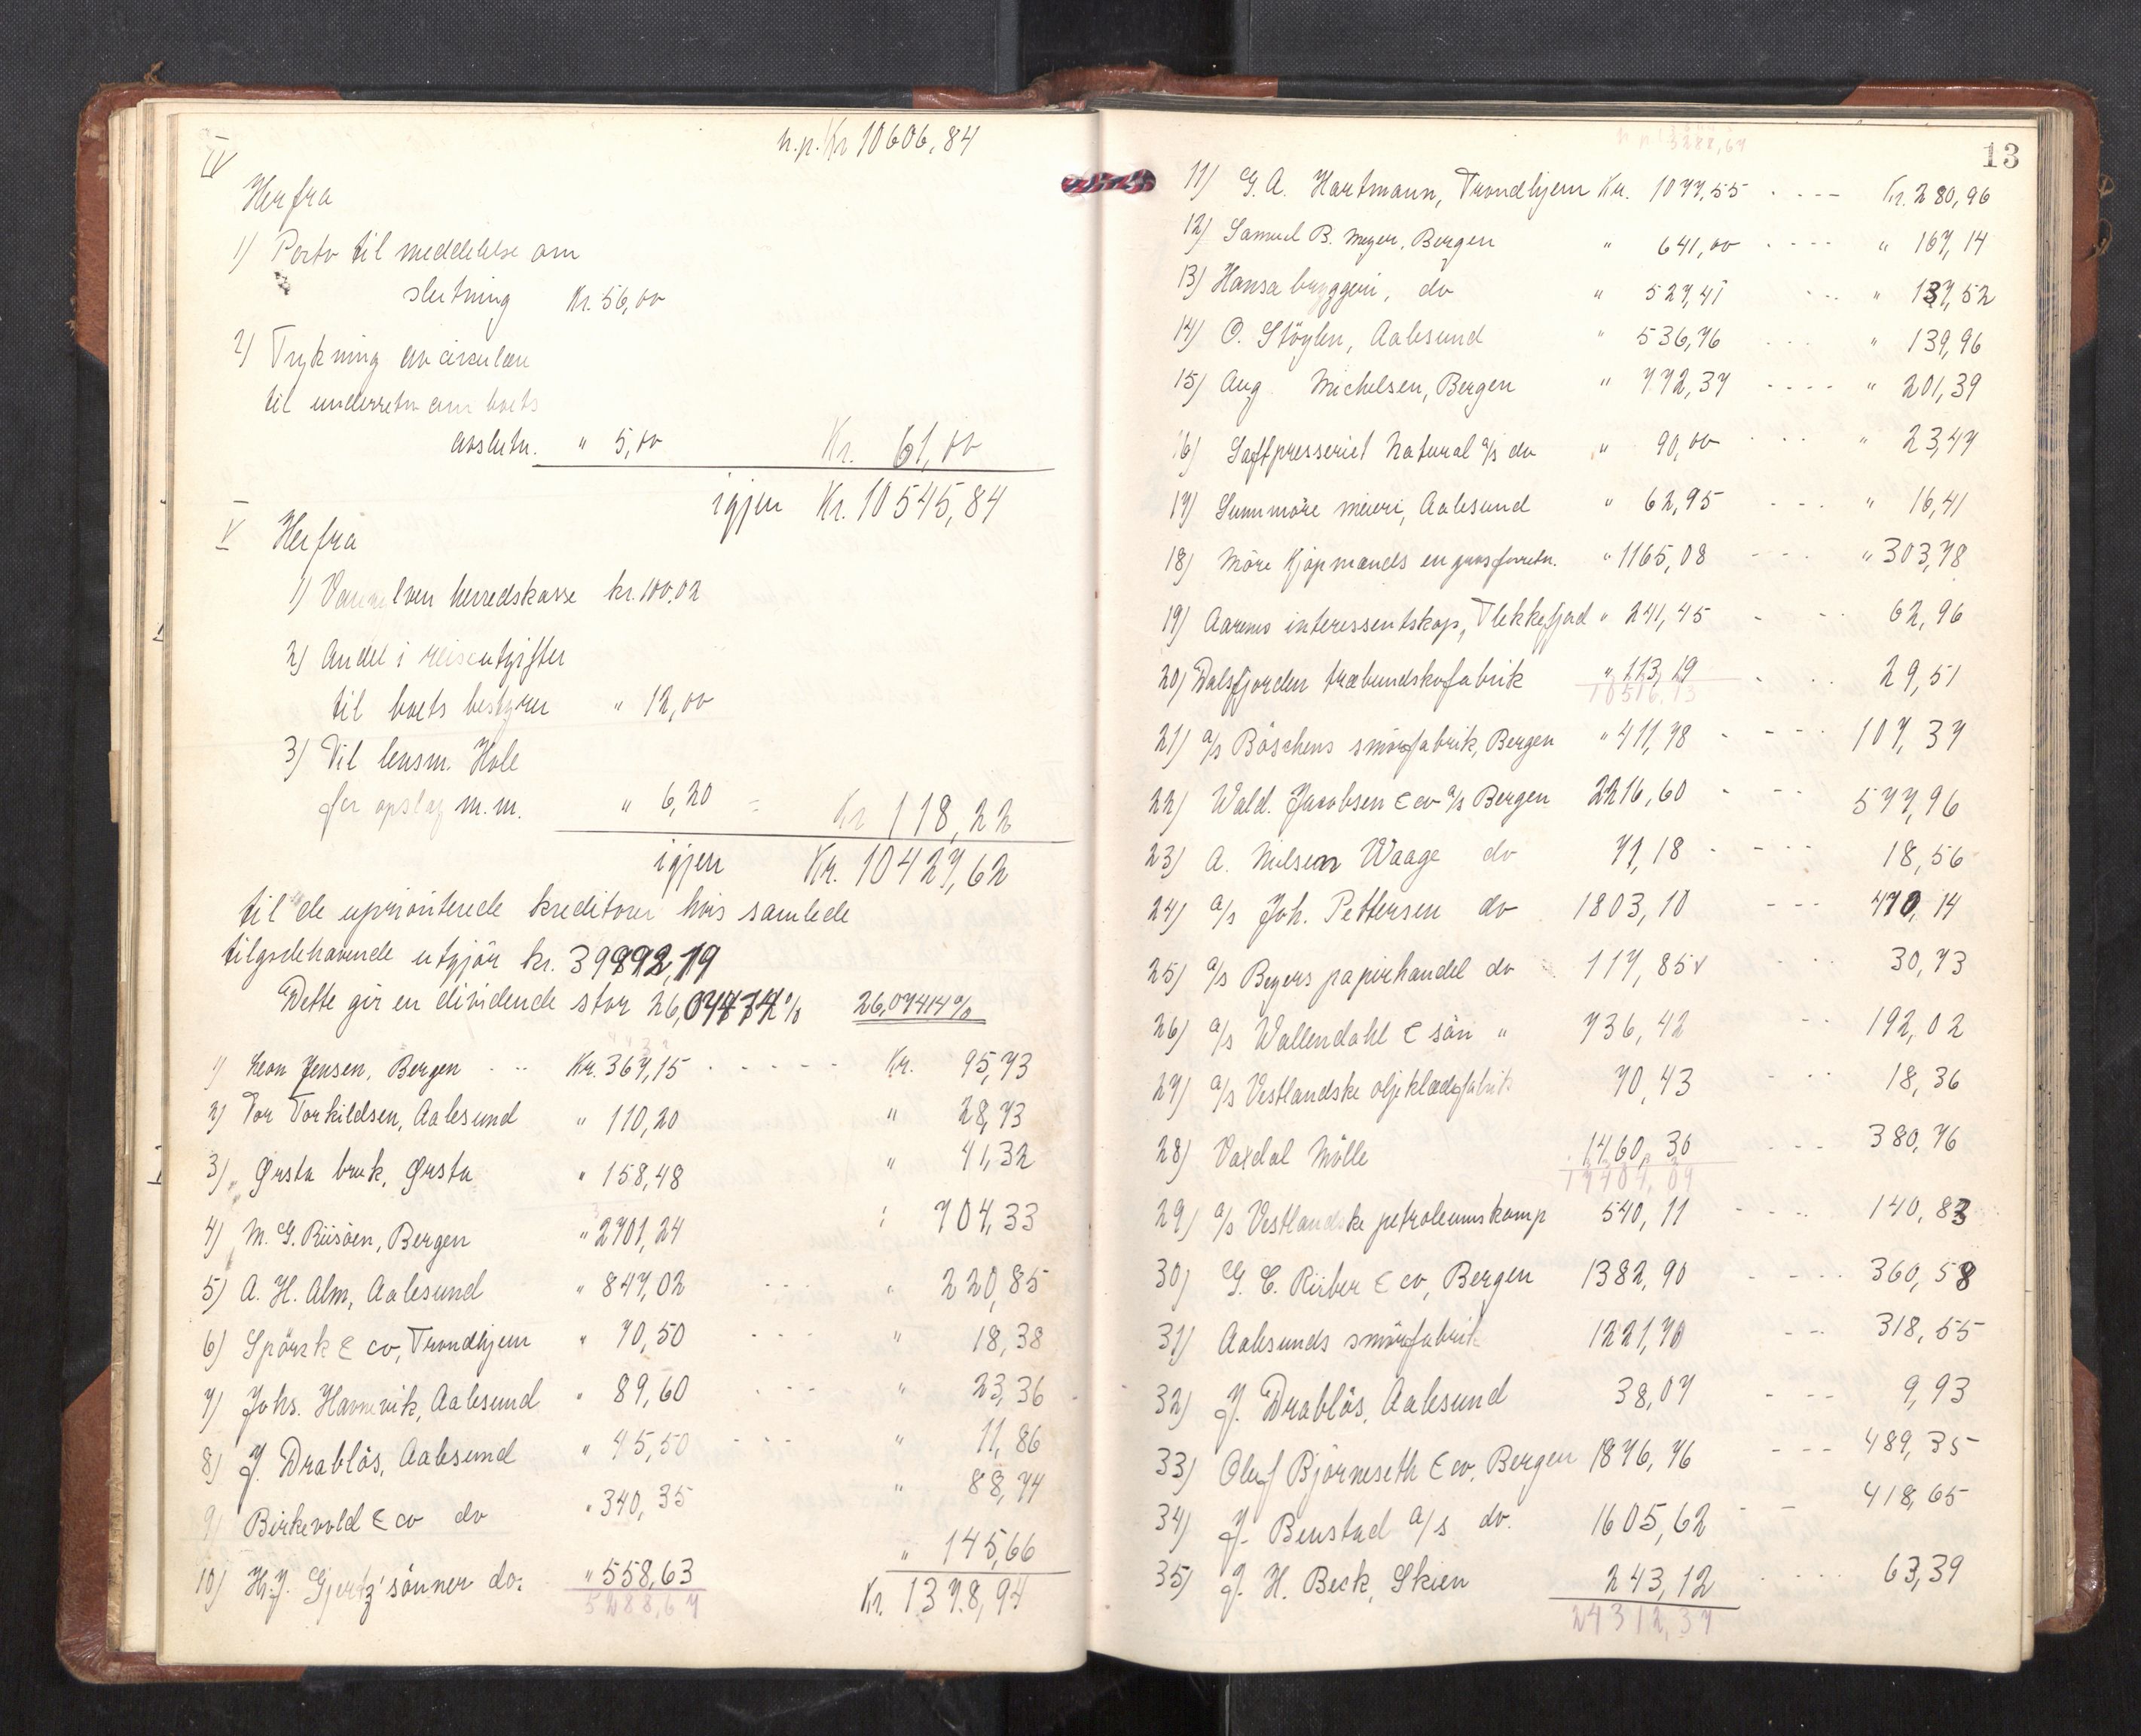 n.p. Kr 10606,84
IV
Herfra
1) Porto til meddelelse om
slutning Kr. 56,00
2) Trykning av cirkulære
til underretn om boets
avslutn. " 5,00 Kr. 61,00
igjen Kr. 10545,84
V Herfra
1) Vanelven herredskasse kr. 100,02
2) Andel i reiseutgifter
til boets bestyrer " 12,00
3) Til lensm. Hole
for opslag m.m. " 6,20 = Kr 118,22
igjen Kr. 10427,62
til de uprioriterede kreditorer hvis samlede
tilgodehavende utgjör kr. 39992,19
Dette gir en dividende stor 26,07474% 26,07414%
1) Leon Jensen, Bergen Kr. 367,15 Kr. 95,73
2) Tor Torkildsen, Aalesund " 110,20 " 28,73
3) Ørsta bruk, Ørsta " 158,48 " 41,32
4) M. G. Riisöen, Bergen " 2701,24 : 704,33
5) A. H. Alm, Aalesund " 847,02 " 220,85
6) Spörck & co, Trondhjem " 70,50 " 18,38
7) Johs. Havnevik, Aalesund " 89,60 " 23,36
8) J. Drablös, Aalesund " 45,50 " 11,86
9) Birkevold & co do " 340,35 " 88,74
10) H.J. Gjertz' sönner do. " 558,63 " 145,66
5288,67 Kr. 1378,94
13
n.p. 5288,67
11) G. A. Hartmann, Trondhjem Kr. 1077,55 Kr. 280,96
12) Samuel B. Meyer, Bergen " 641,00 " 167,14
13) Hansa bryggeri, do " 527,41 " 137,52
14) O. Stöylen, Aalesund " 536,76 " 139,96
15) Aug Michelsen, Bergen " 772,37 " 201,39
16) Saftpresseriet Natural a/s do " 90,00 " 23,47
17) Sunnmöre meieri, Aalesund " 62,95 " 16,41
18) Möre Kjöpmands engrosforretn. " 1165,08 " 303,78
19) Aarenes interessentskap, Flekkefjord " 241,45 62,96
20) Dalsfjorden træbundskofabrik " 113,19 29,51
10516,13
21) a/s Böschens smörfabrik, Bergen " 411,78 107,37
22) Wald. Jacobsen & co a/s Bergen 2216,60 577,96
23) A. Nilsen Waage do 71,18 18,56
24) a/s Joh. Pettersen do 1803,10 470,14
25) a/s Beyers papirhandel do 117,85 30,73
26) a/s Wallendahl & sön " 736,42 192,02
27) a/s Vestlandske oljeklædefabrik 70,43 18,36
28) Vaxdal Mölle 1460,30 380,76
17404,09
29) a/s Vestlandske petroleumskomp 540,11 140,83
30) G. C. Rieber & co, Bergen 1382,90 360,58
31) Aalesunds smörfabrik 1221,70 318,55
32) J. Drablös, Aalesund 38,07 9,93
33) Oluf Björneseth & co, Bergen 1876,76 489,35
34) J. Benstad a/s do. 1605,62 418,65
35) J. H. Beck, Skien 243,12 63,39
24312,37